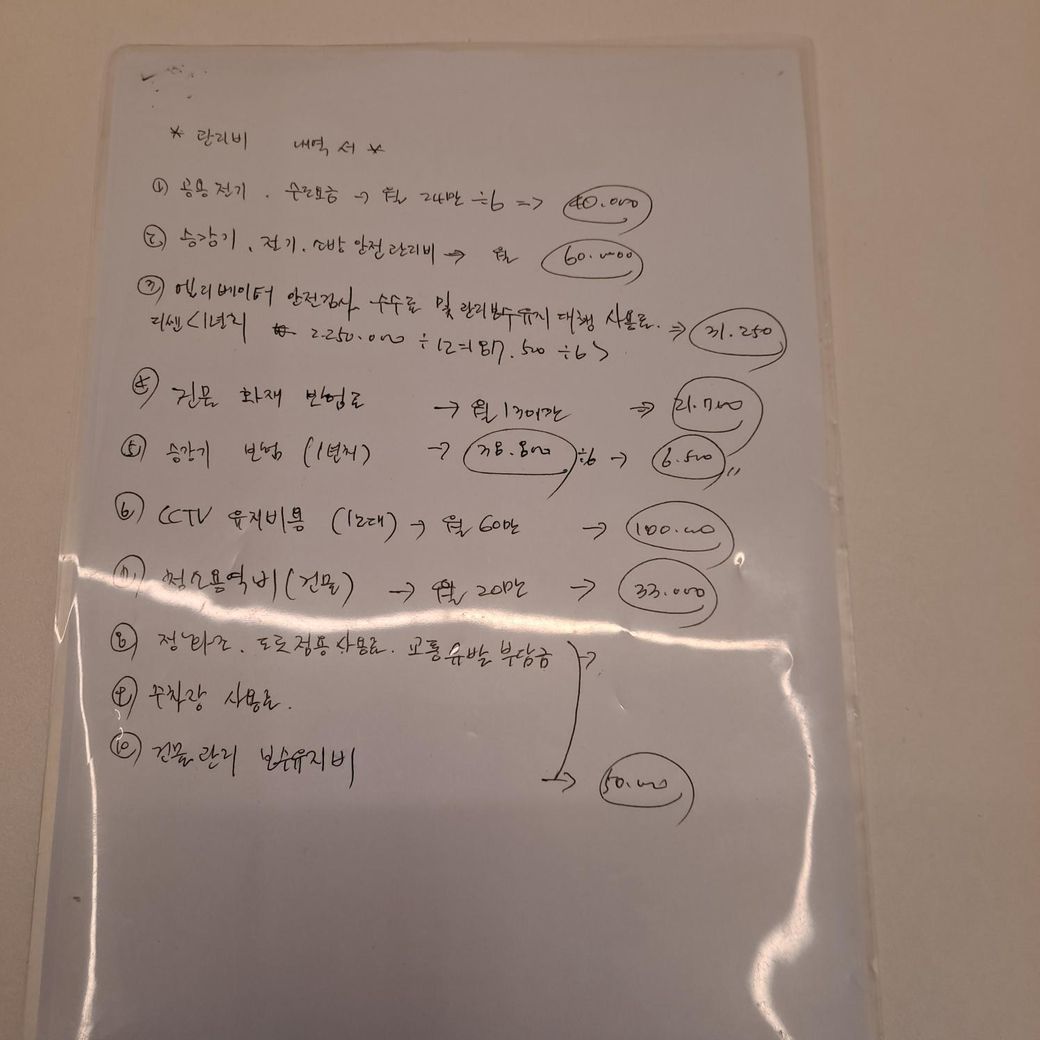 * 관리비 내역서 *
① 공용전기 . 수도요금 → 월 24만 ÷6 => 40.000
② 승강기 . 전기 . 소방 안전관리비 → 월 60.000
③ 엘리베이터 안전검사 수수료 및 관리보수유지 대행 사용료. => 31.250
<1년치 2.250.000 ÷12=187.500 ÷6>
④ 건물 화재 보험료 → 월 13여만 => 21.700
⑤ 승강기 보험 (1년치) → 38.800 ÷6 → 6.500 〃
⑥ CCTV 유지비용 (12대) → 월 60만 → 100.000
⑦ 청소용역비 (건물) → 월 20만 → 33.000
⑧ 정화조 . 도로점용사용료 . 교통유발부담금 →
⑨ 주차장 사용료.
⑩ 건물관리 보수유지비 → 50.000